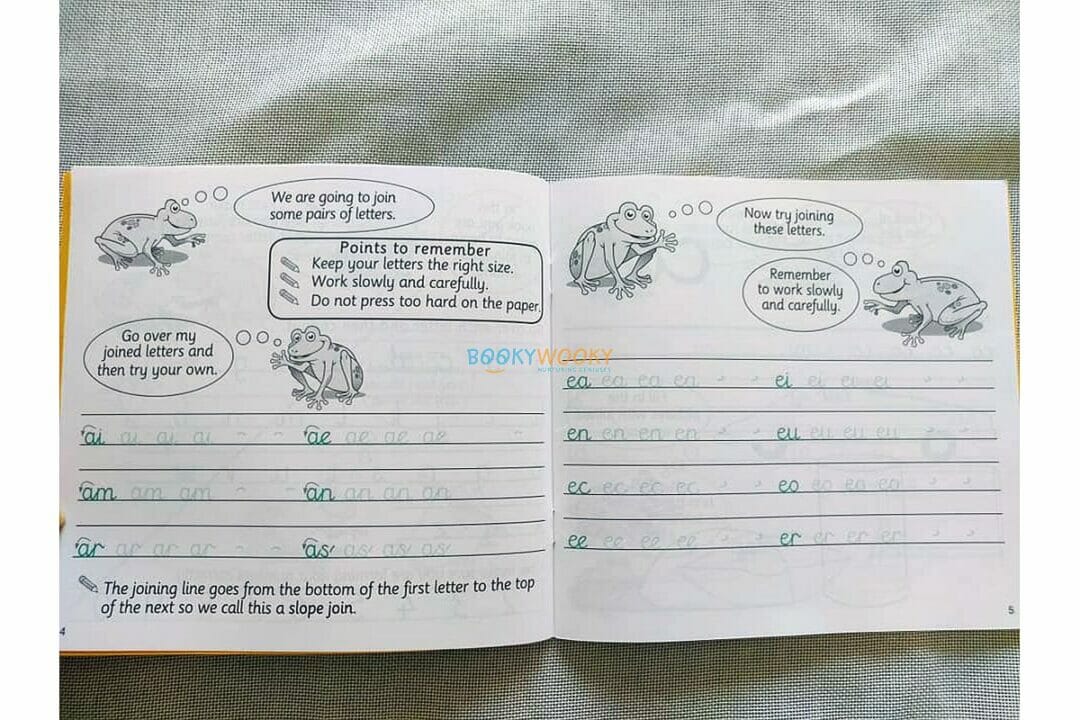 We are going to join
some pairs of letters.
Points to remember
Keep your letters the right size.
Work slowly and carefully.
Do not press too hard on the paper.
Go over my
joined letters and
then try your own.
ai ai ai ai ae ae ae ae
am am am an an an an
ar ar ar ar as as as as
The joining line goes from the bottom of the first letter to the top
of the next so we call this a slope join.
4
Now try joining
these letters.
Remember
to work slowly
and carefully.
BOOKYWOOKY
NURTURING GENIUSES
ea ea ea ea ei ei ei ei
en en en en eu eu eu eu
ec ec ec ec eo eo eo eo
ee ee ee ee er er er er
5